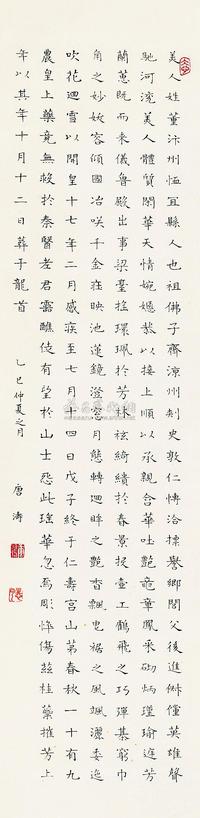 美人姓董汴州恤宜縣人也祖佛子齊涼州刺史敦仁博洽標譽鄉閭父後進俶儻英雄聲
馳河兗美人體質閑華天情婉嫕恭以接上順以承親含華吐艷龍章鳳采砌炳瑾瑜庭芳
蘭蕙既而来儀魯殿出事梁臺搖環珮於芳林袨綺繢於春景投壺工鶴飛之巧彈棊窮巾
角之妙妖容傾國冶咲千金妝映池蓮鏡澄窓月態轉迴眸之艷香飄曳裾之風颯灑委迤
吹花迴雪以開皇十七年二月感疾至七月十四日戊子終于仁壽宮山第春秋一十有九
農皇上藥竟無救於秦醫老君靈醮徒有望於山士怨此瑤華忽焉彫悴傷茲桂蘂摧芳上
年以其年十月十二日葬于龍首
乙巳仲夏之月 唐濤